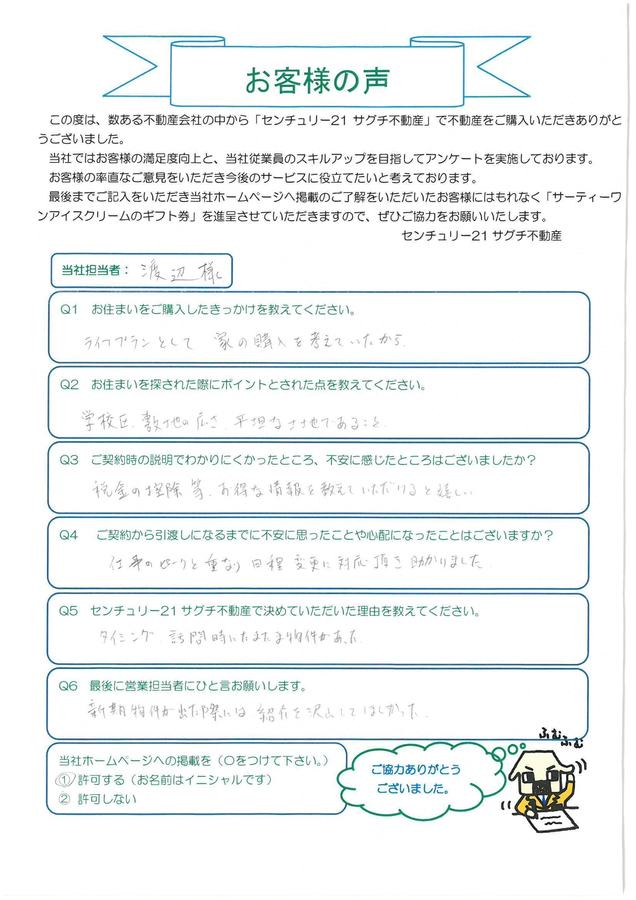 お客様の声
この度は、数ある不動産会社の中から「センチュリー21 サグチ不動産」で不動産をご購入いただきありがと
うございました。
当社ではお客様の満足度向上と、当社従業員のスキルアップを目指してアンケートを実施しております。
お客様の率直なご意見をいただき今後のサービスに役立てたいと考えております。
最後までご記入をいただき当社ホームページへ掲載のご了解をいただいたお客様にはもれなく「サーティーワ
ンアイスクリームのギフト券」を進呈させていただきますので、ぜひご協力をお願いいたします。
センチュリー21 サグチ不動産
当社担当者： 渡辺様
Q1 お住まいをご購入したきっかけを教えてください。
ライフプランとして 家の購入を考えていたから.
Q2 お住まいを探された際にポイントとされた点を教えてください。
学校区、敷地の広さ、平坦な土地であること.
Q3 ご契約時の説明でわかりにくかったところ、不安に感じたところはございましたか？
税金の控除等、お得な情報を教えていただけると嬉しい.
Q4 ご契約から引渡しになるまでに不安に思ったことや心配になったことはございますか？
仕事のピークと重なり 日程変更に対応頂き助かりました.
Q5 センチュリー21 サグチ不動産で決めていただいた理由を教えてください。
タイミング、訪問時にたまたま物件があった.
Q6 最後に営業担当者にひと言お願いします。
新期物件が出た際には 紹介を沢山してほしかった.
当社ホームページへの掲載を（○をつけて下さい。）
① 許可する（お名前はイニシャルです）
② 許可しない
ご協力ありがとう
ございました。
ふむ
ふむ